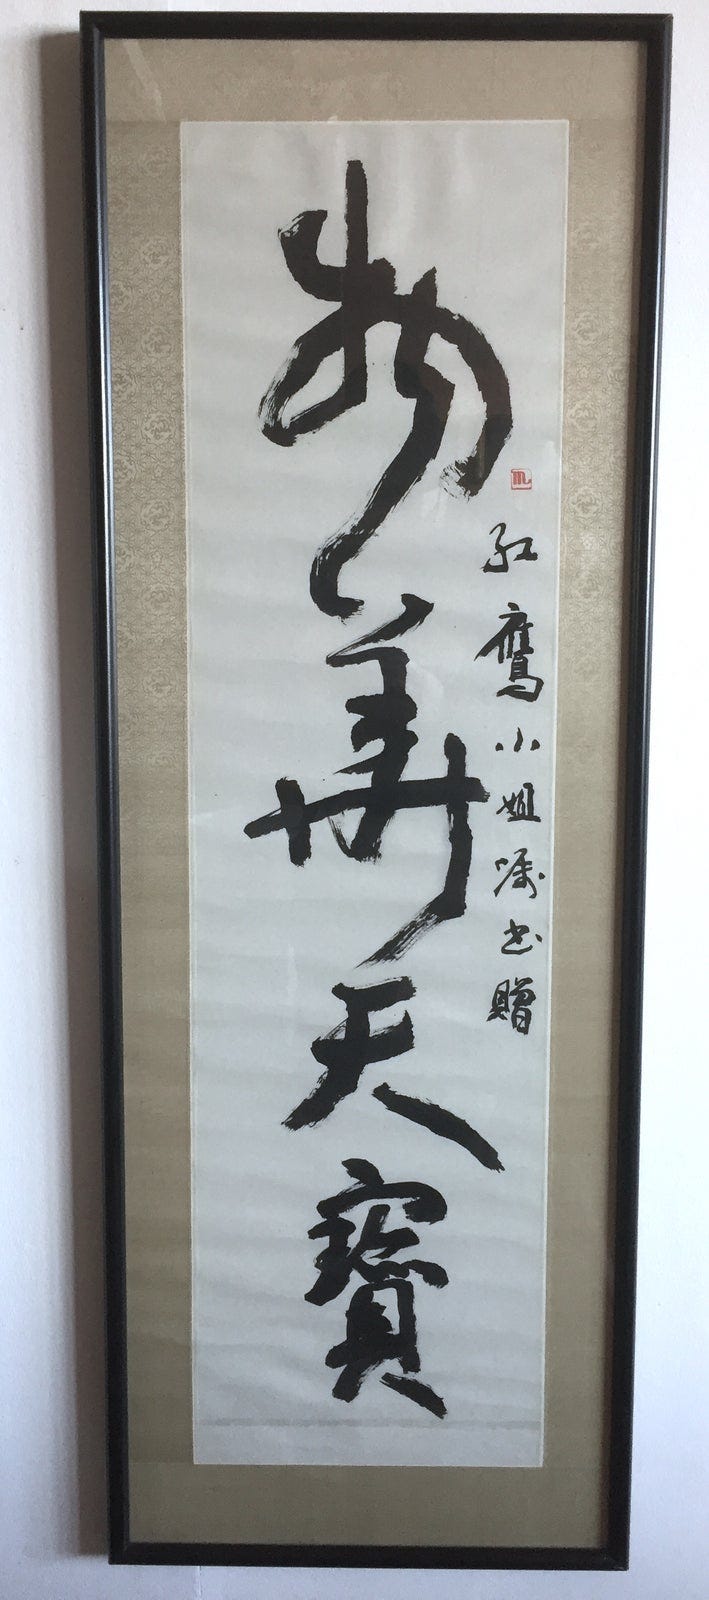 物華天寶
紅鷹小姐嘱书贈